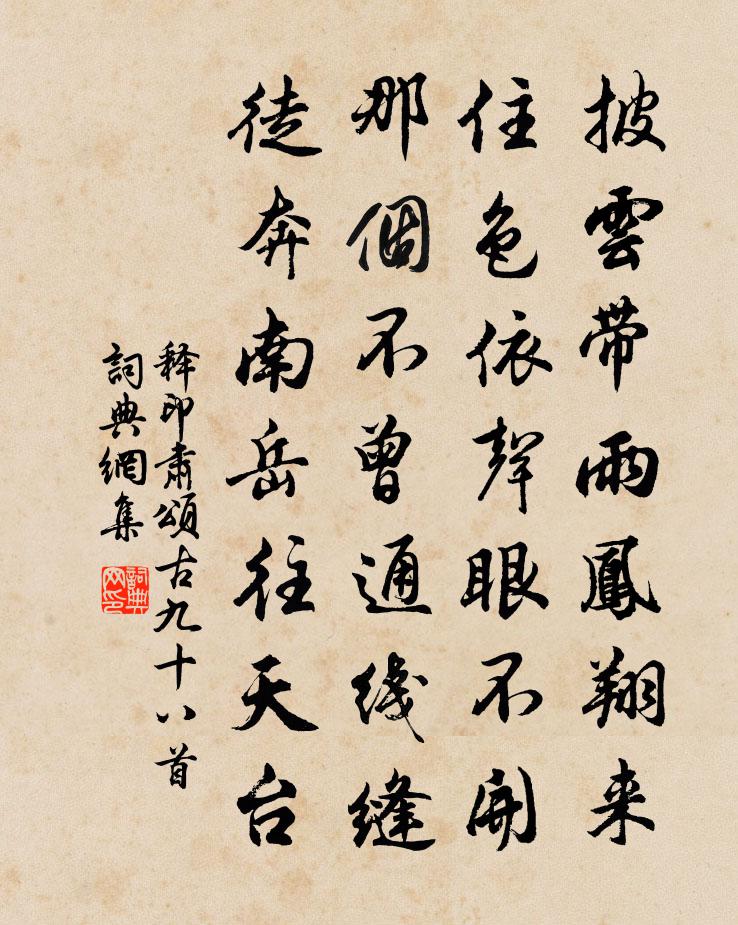 披雲帶雨鳳翔来
住色依聲眼不開
那個不曾通綫縫
徒奔南岳往天台
释印肅頌古九十八首
詞典網集
詞典网印